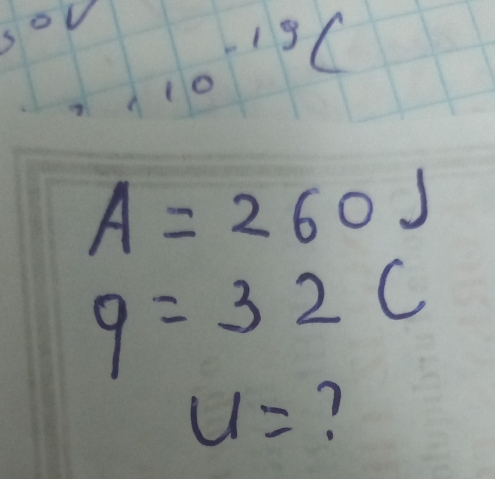 50V
10⁻¹⁹C
A = 260 J
q = 32 C
U = ?